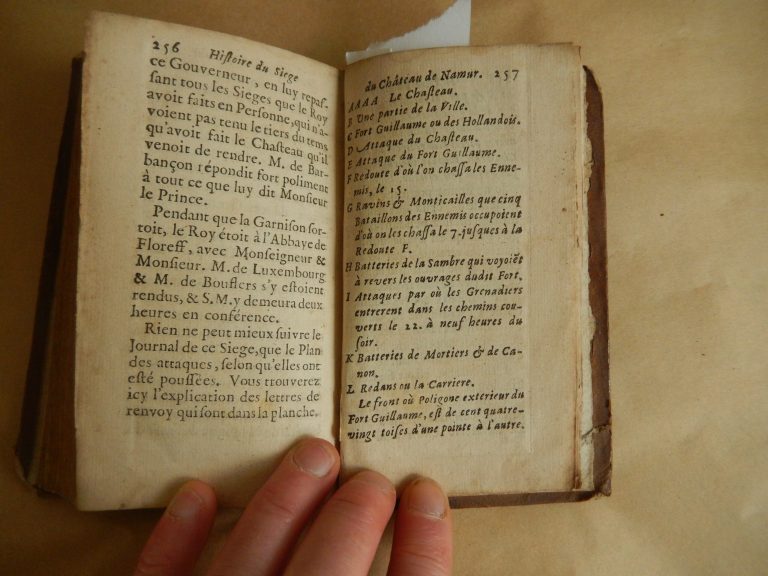 256 Histoire du Siege
ce Gouverneur, en luy repaſ-
ſant tous les Sieges que le Roy
avoit faits en Perſonne, qui n'a-
voient pas tenu le tiers du tems
qu'avoit fait le Chaſteau qu'il
venoit de rendre. M. de Bar-
bançon répondit fort poliment
à tout ce que luy dit Monſieur
le Prince.
Pendant que la Garniſon ſor-
toit, le Roy étoit à l'Abbaye de
Floreff, avec Monſeigneur &
Monſieur. M. de Luxembourg
& M. de Bouflers s'y eſtoient
rendus, & S. M. y demeura deux
heures en conférence.
Rien ne peut mieux ſuivre le
Journal de ce Siege, que le Plan
des attaques, ſelon qu'elles ont
eſté pouſſées. Vous trouverez
icy l'explication des lettres de
renvoy qui ſont dans la planche.
du Château de Namur. 257
AAAA Le Chaſteau.
B Une partie de la Ville.
C Fort Guillaume ou des Hollandois.
D Attaque du Chaſteau.
E Attaque du Fort Guillaume.
F Redoute d'où l'on chaſſa les Enne-
mis, le 15.
G Ravins & Monticailles que cinq
Bataillons des Ennemis occupoient
d'où on les chaſſa le 7. juſques à la
Redoute F.
H Batteries de la Sambre qui voyoiẽt
à revers les ouvrages dudit Fort.
I Attaques par où les Grenadiers
entrerent dans les chemins cou-
verts le 22. à neuf heures du
ſoir.
K Batteries de Mortiers & de Ca-
non.
L Redans ou la Carriere.
Le front où Poligone exterieur du
Fort Guillaume, eſt de cent quatre-
vingt toiſes d'une pointe à l'autre.